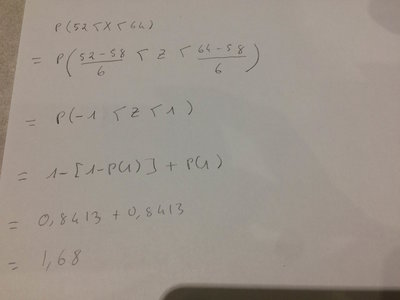 P(52<X<64)
= P(52-58/6 < Z < 64-58/6)
= P(-1 < Z < 1)
= 1-[1-P(1)] + P(1)
= 0,8413 + 0,8413
= 1,68